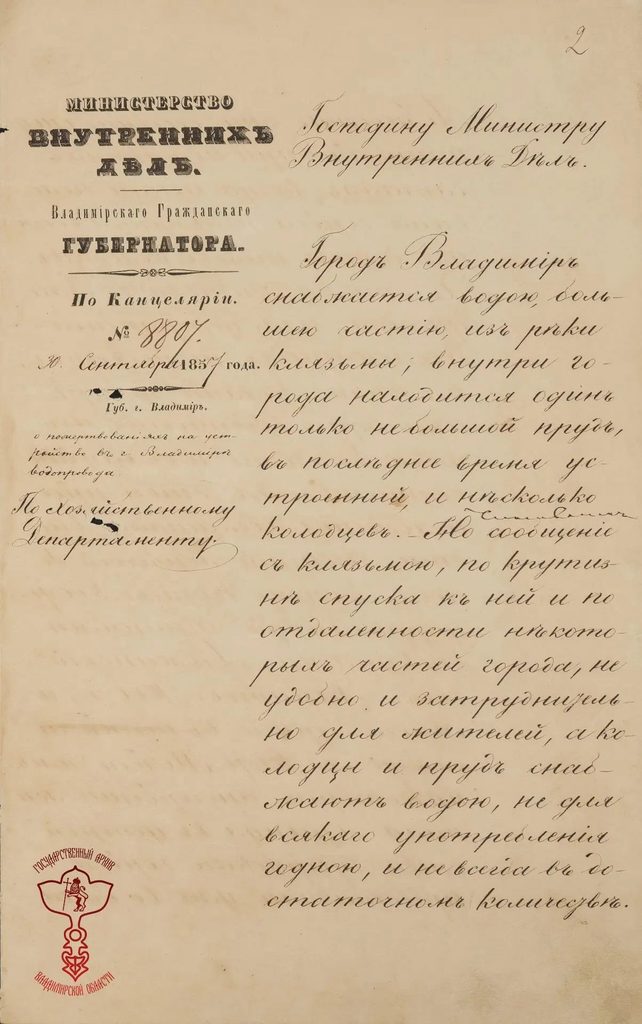 2
МИНИСТЕРСТВО
ВНУТРЕННИХЪ
ДѢЛЪ.
Владимірскаго Гражданскаго
ГУБЕРНАТОРА.
По Канцеляріи.
№ 8807.
30. Сентября 1857 года.
Губ. г. Владиміръ.
о пожертвованіяхъ на уст-
ройство въ г. Владимірѣ
водопровода
По Хозяйственному
Департаменту.
Господину Министру
Внутреннихъ Дѣлъ.
Городъ Владиміръ
снабжается водою, боль-
шею частію, изъ рѣки
Клязьмы; внутри го-
рода находится одинъ
только небольшой прудъ,
въ послѣднее время ус-
троенный, и нѣсколько
колодцевъ. – Но сообщеніе
съ Клязьмою, по крутиз-
нѣ спуска къ ней и по
отдаленности нѣкото-
рыхъ частей города, не
удобно и затруднитель-
но для жителей, а ко-
лодцы и прудъ снаб-
жаютъ водою, не для
всякаго употребленія
годною, и не всегда въ до-
статочномъ количествѣ.
ГОСУДАРСТВЕННЫЙ АРХИВ
ВЛАДИМИРСКОЙ ОБЛАСТИ